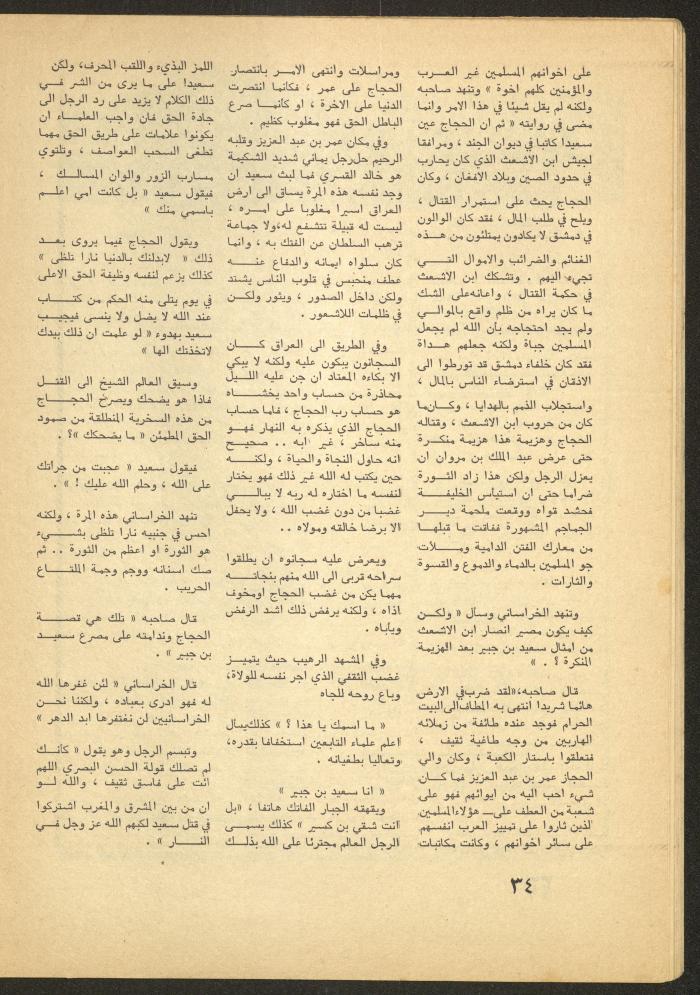 على اخوانهم المسلمين غير العرب
والمؤمنين كلهم اخوة » وتنهد صاحبه
ولكنه لم يقل شيئا في هذا الامر وانما
مضى في روايته « ثم ان الحجاج عين
سعيدا كاتبا في ديوان الجند ، ومرافقا
لجيش ابن الاشعث الذي كان يحارب
في حدود الصين وبلاد الافغان ، وكان
الحجاج يحث على استمرار القتال ،
ويلح في طلب المال ، فقد كان الوالون
في دمشق لا يكادون يمتلئون من هـذه
الغنائم والضرائب والاموال التــي
تجيء اليهم . وتشكك ابن الاشعث
في حكمة القتال ، واعانه على الشك
ما كان يراه من ظلم واقع بالموالي
ولم يجد احتجاجه بأن الله لم يجعل
المسلمين جباة ولكنه جعلهم هـداة
فقد كان خلفاء دمشق قد تورطوا الى
الاذقان في استرضاء الناس بالمال ،
واستجلاب الذمم بالهدايا ، وكـان ما
كان من حروب ابن الاشعث ، وقتاله
الحجاج وهزيمة هذا هزيمة منكرة
حتى عرض عبد الملك بن مروان ان
يعزل الرجل ولكن هذا زاد الثـورة
ضراما حتى ان استيأس الخليفـة
فحشد قواه ووقعت ملحمة ديـر
الجماجم المشهورة ففاقت ما قبلها
من معارك الفتن الدامية ومـــلأت
جو المسلمين بالدماء والدموع والقسوة
والثارات .
وتنهد الخراساني وسأل « ولكـن
كيف يكون مصير انصار ابن الاشعث
من امثال سعيد بن جبير بعد الهزيمة
المنكرة ؟ . »
قال صاحبه، «لقد ضرب في الارض
هائما شريدا انتهى به المطاف الى البيت
الحرام فوجد عنده طائفة من زملائه
الهاربين من وجه طاغية ثقيف ،
فتعلقوا باستار الكعبة ، وكان والي
الحجاز عمر بن عبد العزيز فما كـان
شيء احب اليه من ايوائهم فهو على
شعبة من العطف على هؤلاء المسلمين
الذين ثاروا على تمييز العرب انفسهم
على سائر اخوانهم ، وكانت مكاتبات
ومراسلات وانتهى الامر بانتصار
الحجاج على عمر ، فكأنما انتصرت
الدنيا على الاخرة ، او كأنمـا صرع
الباطل الحق فهو مغلوب كظيم .
وفي مكان عمر بن عبد العزيز وقلبه
الرحيم حل رجل يماني شديد الشكيمة
هو خالد القسري فما لبث سعيد ان
وجد نفسه هذه المرة يساق الى ارض
العراق اسيرا مغلوبا على امـره ،
ليست له قبيلة تتشفع له، ولا جماعة
ترهب السلطان عن الفتك به ، وانما
كان سلواه ايمانه والدفاع عنــه
عطف منحبس في قلوب الناس يشتد
ولكن داخل الصدور ، ويثور ولكـن
في ظلمات اللاشعور .
وفي الطريق الى العراق كـــان
السجانون يبكون عليه ولكنه لا يبكي
الا بكاءه المعتاد ان جن عليه الليـل
محاذرة من حساب واحد يخشـاه
هو حساب رب الحجاج ، فاما حساب
الحجاج الذي يذكره به النهار فهـو
منه ساخر ، غير آبه .. صحيـح
انه حاول النجاة والحياة ، ولكنـه
حين يكتب له الله غير ذلك فهو يختار
لنفسه ما اختاره له ربه لا يبالـي
غضبا من دون غضب الله ، ولا يحفل
الا برضا خالقه ومولاه ..
ويعرض عليه سجانوه ان يطلقوا
سراحه قربى الى الله منهم بنجاتــه
مهما يكن من غضب الحجاج او مخوف
اذاه ، ولكنه يرفض ذلك اشد الرفض
ويأباه .
وفي المشهد الرهيب حيث يتميـز
غضب الثقفي الذي اجر نفسه للولاة،
وباع روحه للجاه
« ما اسمك يا هذا ؟ » كذلك يسأل
اعلم علماء التابعين استخفافا بقدره،
وتعاليا بطغيانه .
« انا سعيد بن جبير »
ويقهقه الجبار الفاتك هاتفا ، «بل
انت شقي بن كسير » كذلك يسمـى
الرجل العالم مجترئا على الله بذلـك
اللمز البذيء واللقب المحرف، ولكن
سعيدا على ما يرى من الشر فــي
ذلك الكلام لا يزيد على رد الرجل الى
جادة الحق فان واجب العلمـاء ان
يكونوا علامات على طريق الحق مهما
تطغى السحب العواصف ، وتلتوي
مسارب الزور والوان المسالـك ،
فيقول سعيد « بل كانت امي اعلـم
باسمي منك »
ويقول الحجاج فيما يروى بعـد
ذلك « لابدلنك بالدنيا نارا تلظى »
كذلك يزعم لنفسه وظيفة الحق الاعلى
في يوم يتلى منه الحكم من كتــاب
عند الله لا يضل ولا ينسى فيجيـب
سعيد بهدوء « لو علمت ان ذلك بيدك
لاتخذتك الها »
وسيق العالم الشيخ الى القتـل
فاذا هو يضحك ويصرخ الحجــاج
من هذه السخرية المنطلقة من صمود
الحق المطمئن « ما يضحكك »؟ .
فيقول سعيد « عجبت من جرأتك
على الله ، وحلم الله عليك ! » .
تنهد الخراساني هذه المرة ، ولكنه
احس في جنبيه نارا تلظى بشــيء
هو الثورة او اعظم من الثورة .. ثم
صك اسنانه ووجم وجمة الملتـــاع
الحريب .
قال صاحبه « تلك هي قصــة
الحجاج وندامته على مصرع سعيـد
بن جبير » .
قال الخراساني « لئن غفرها الله
له فهو ادرى بعباده ، ولكننا نحـن
الخراسانيين لن نغتفرها ابد الدهر »
وتبسم الرجل وهو يقول « كأنـك
لم تصلك قولة الحسن البصري اللهم
ائت على فاسق ثقيف ، والله لــو
ان من بين المشرق والمغرب اشتركوا
في قتل سعيد لكبهم الله عز وجل فـي
النــار » .
٣٤